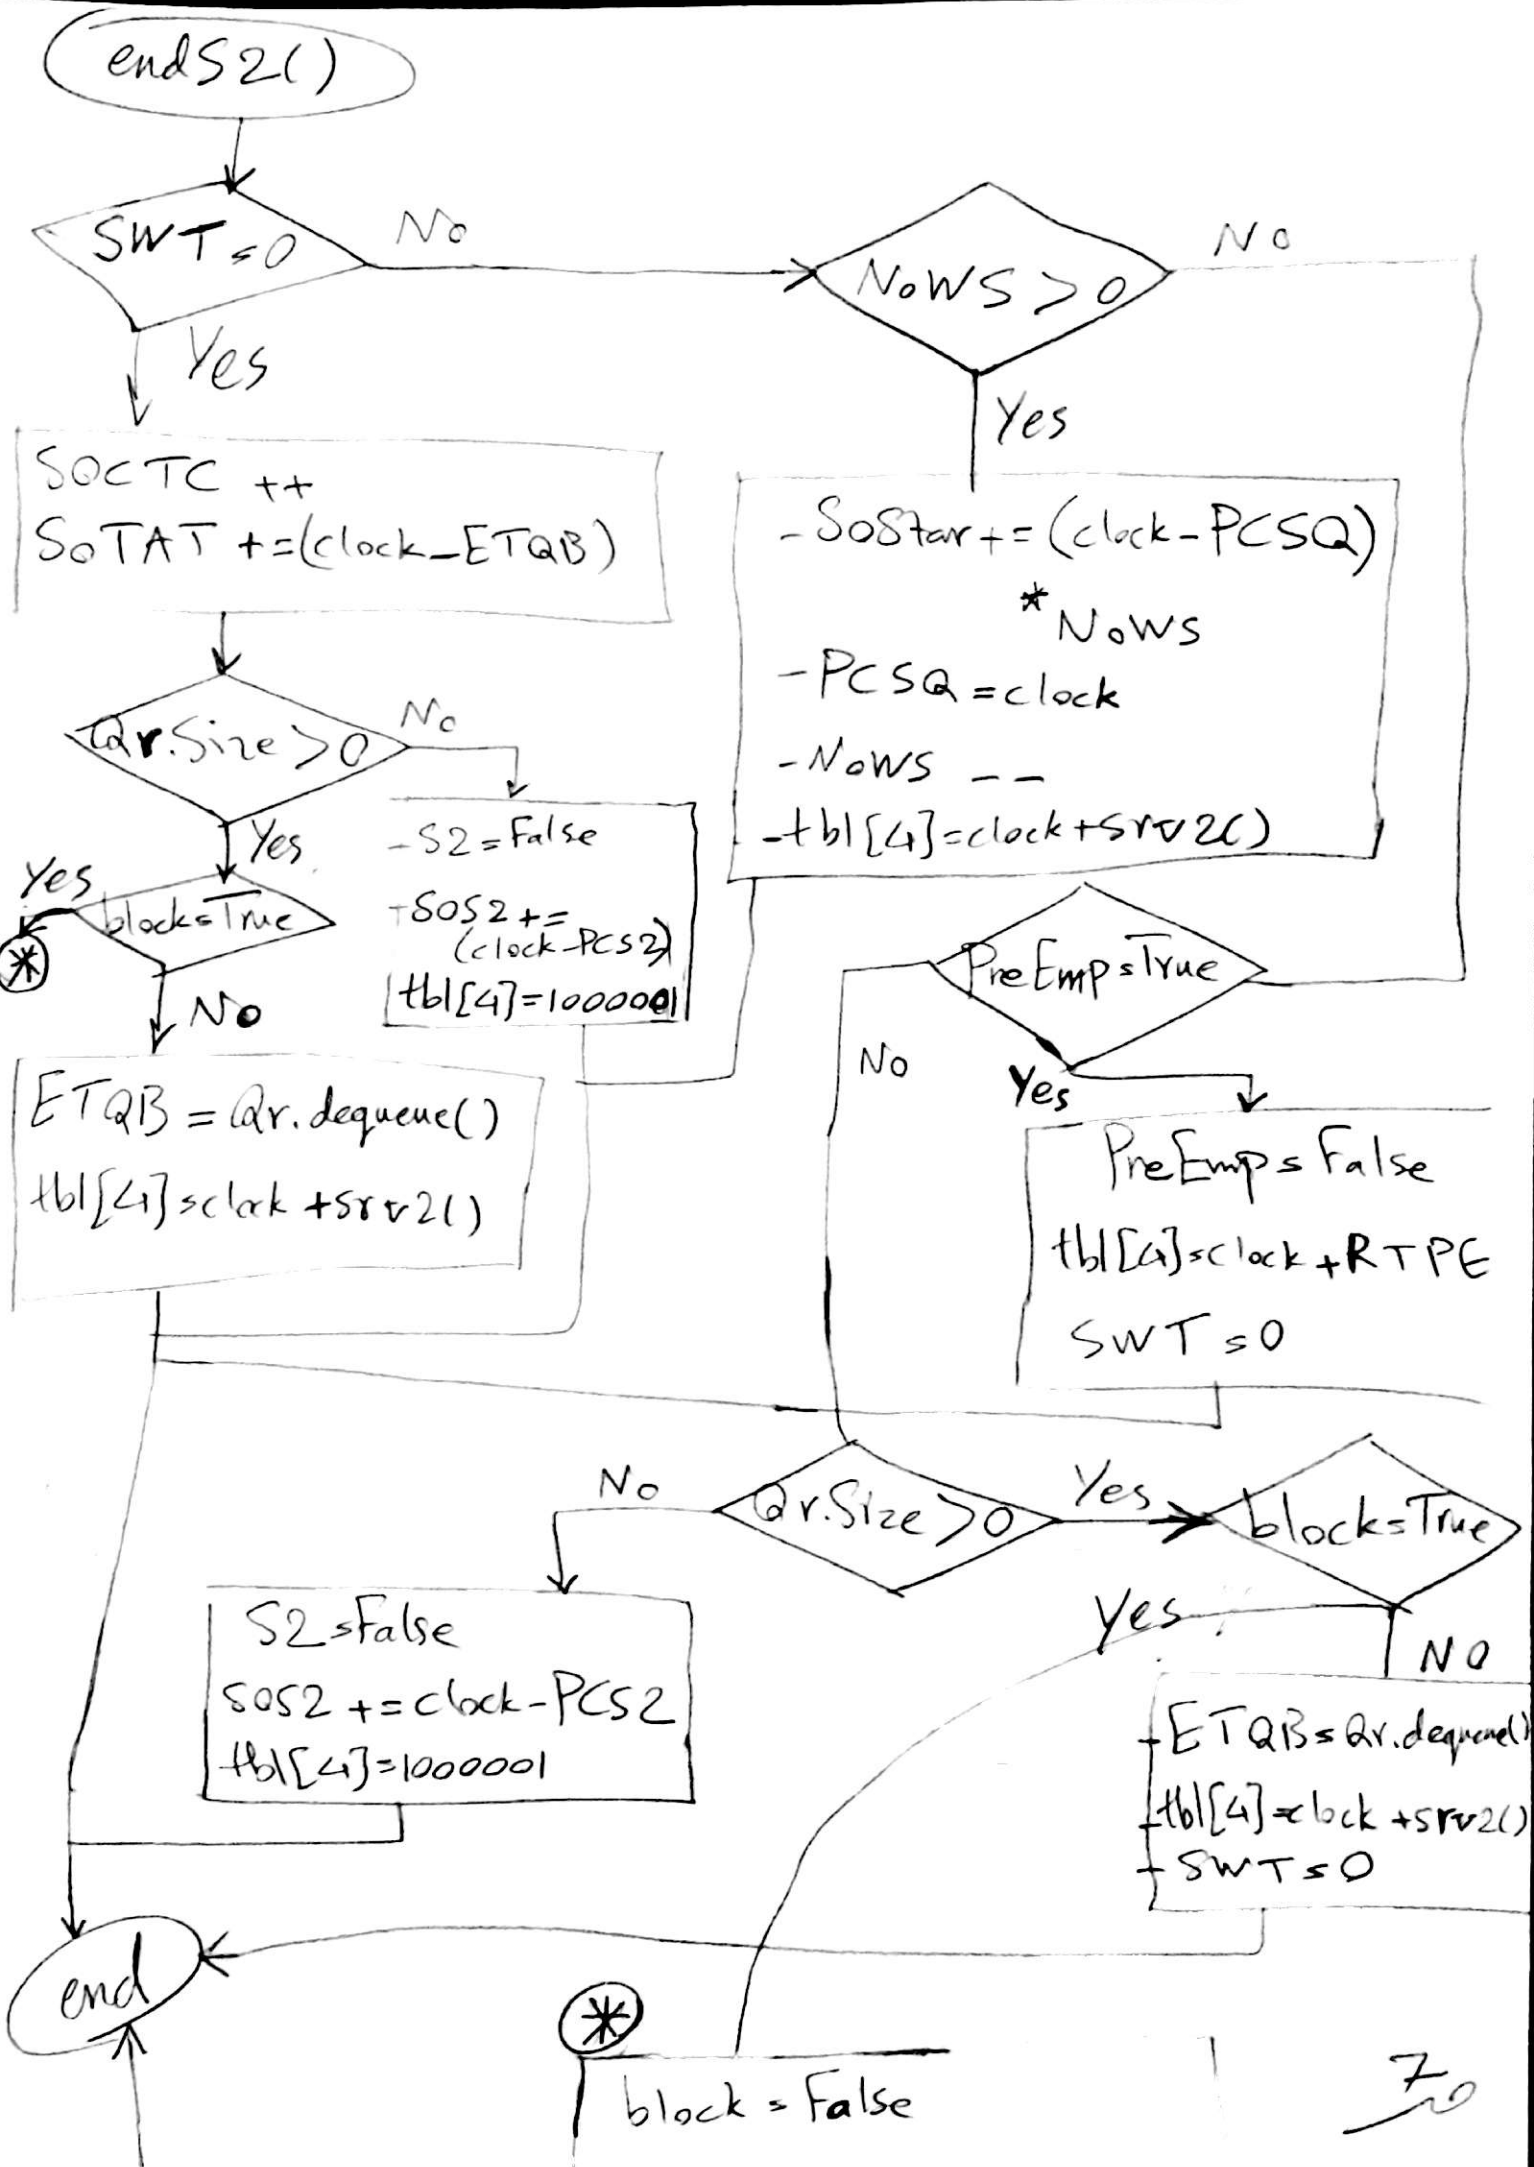 endS2()
SWT=0
No
NoWS>0
No
Yes
Yes
SOCTC ++
SoTAT +=(clock-ETQB)
-SoStar+=(clock-PCSQ)
*NoWS
-PCSQ=clock
-NoWS --
-tbl[4]=clock+srv2()
Qr.Size>0
No
Yes
-S2=False
-SOS2+=
(clock-PCS2)
tbl[4]=1000001
Yes
block=True
*
No
ETQB=Qr.dequeue()
tbl[4]=clock+srv2()
PreEmp=True
No
Yes
PreEmp=False
tbl[4]=clock+RTPE
SWT=0
No
Qr.Size>0
Yes
block=True
Yes
NO
S2=False
SOS2+=clock-PCS2
tbl[4]=1000001
-ETQB=Qr.dequeue()
-tbl[4]=clock+srv2()
-SWT=0
end
*
block=False